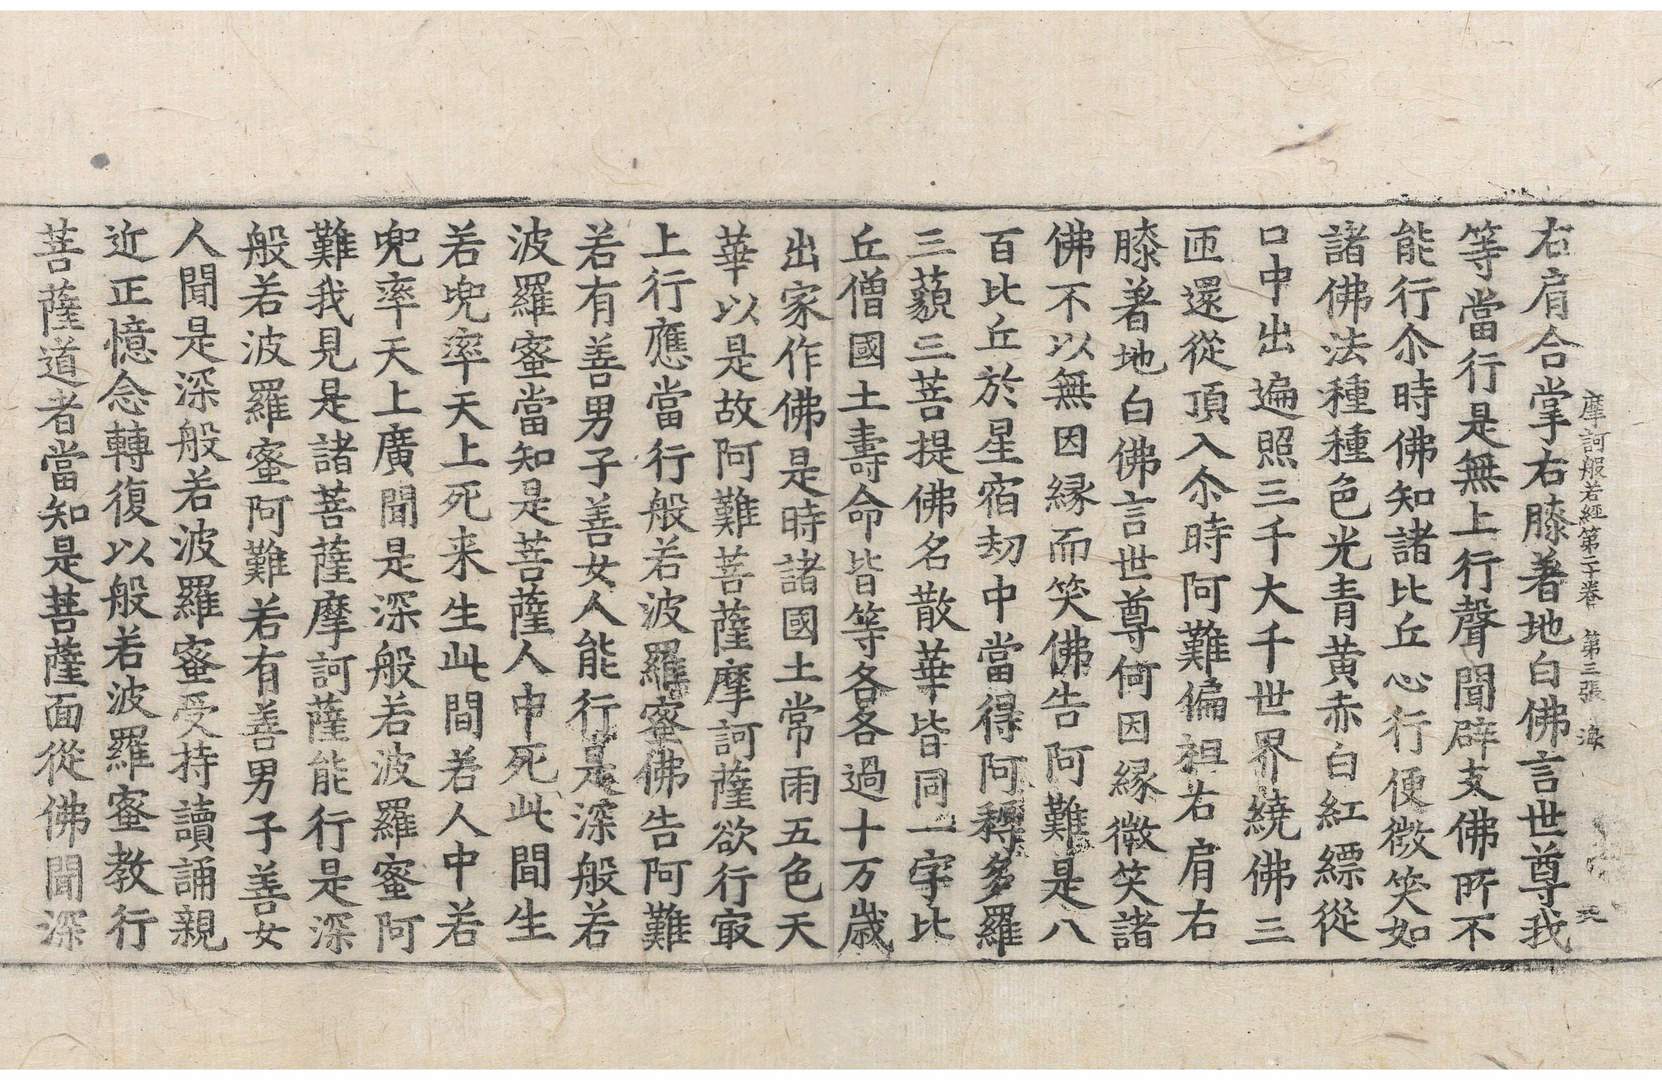 摩訶般若經第二十卷 第三張 海
右肩合掌右膝著地白佛言世尊我
等當行是無上行聲聞辟支佛所不
能行尒時佛知諸比丘心行便微笑如
諸佛法種種色光青黃赤白紅縹從
口中出遍照三千大千世界繞佛三
匝還從頂入尒時阿難偏袒右肩右
膝著地白佛言世尊何因緣微笑諸
佛不以無因緣而笑佛告阿難是八
百比丘於星宿劫中當得阿耨多羅
三藐三菩提佛名散華皆同一字比
丘僧國土壽命皆等各各過十万歲
出家作佛是時諸國土常雨五色天
華以是故阿難菩薩摩訶薩欲行㝡
上行應當行般若波羅蜜佛告阿難
若有善男子善女人能行是深般若
波羅蜜當知是菩薩人中死此間生
若兜率天上死来生此間若人中若
兜率天上廣聞是深般若波羅蜜阿
難我見是諸菩薩摩訶薩能行是深
般若波羅蜜阿難若有善男子善女
人聞是深般若波羅蜜受持讀誦親
近正憶念轉復以般若波羅蜜教行
菩薩道者當知是菩薩面從佛聞深